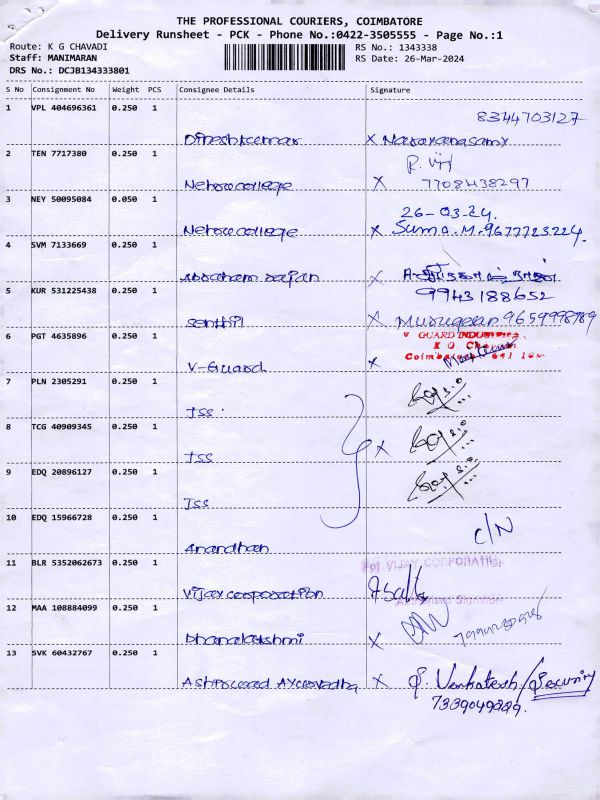 THE PROFESSIONAL COURIERS, COIMBATORE
Delivery Runsheet - PCK - Phone No.:0422-3505555 - Page No.:1
Route: K G CHAVADI
RS No.: 1343338
Staff: MANIMARAN
RS Date: 26-Mar-2024
DRS No.: DCJB134333801
S No Consignment No Weight PCS Consignee Details Signature
1 VPL 404696361 0.250 1
8344703127
Dineshkumar X Narayanasamy
2 TEN 7717380 0.250 1
Nehru college X 7708438297
3 NEY 50095084 0.050 1
26-03-24.
Nehru college X Suma.M.9677723224.
4 SVM 7133669 0.250 1
Abraham X
5 KUR 531225438 0.250 1
9943188652
Senthil X Murugesan 9659998789
6 PGT 4635896 0.250 1
V GUARD INDUSTRIES
K G
V-Guard X
7 PLN 2305291 0.250 1
JSS
8 TCG 40909345 0.250 1
JSS X
9 EDQ 20896127 0.250 1
JSS
10 EDQ 15966728 0.250 1
C/N
Anandhan
11 BLR 5352062673 0.250 1
For VIJAY CORPORATION
Vijay corporation
Authorised Signatory
12 MAA 108884099 0.250 1
Dhanalakshmi X
13 SVK 60432767 0.250 1
X S. Venkatesh/Security